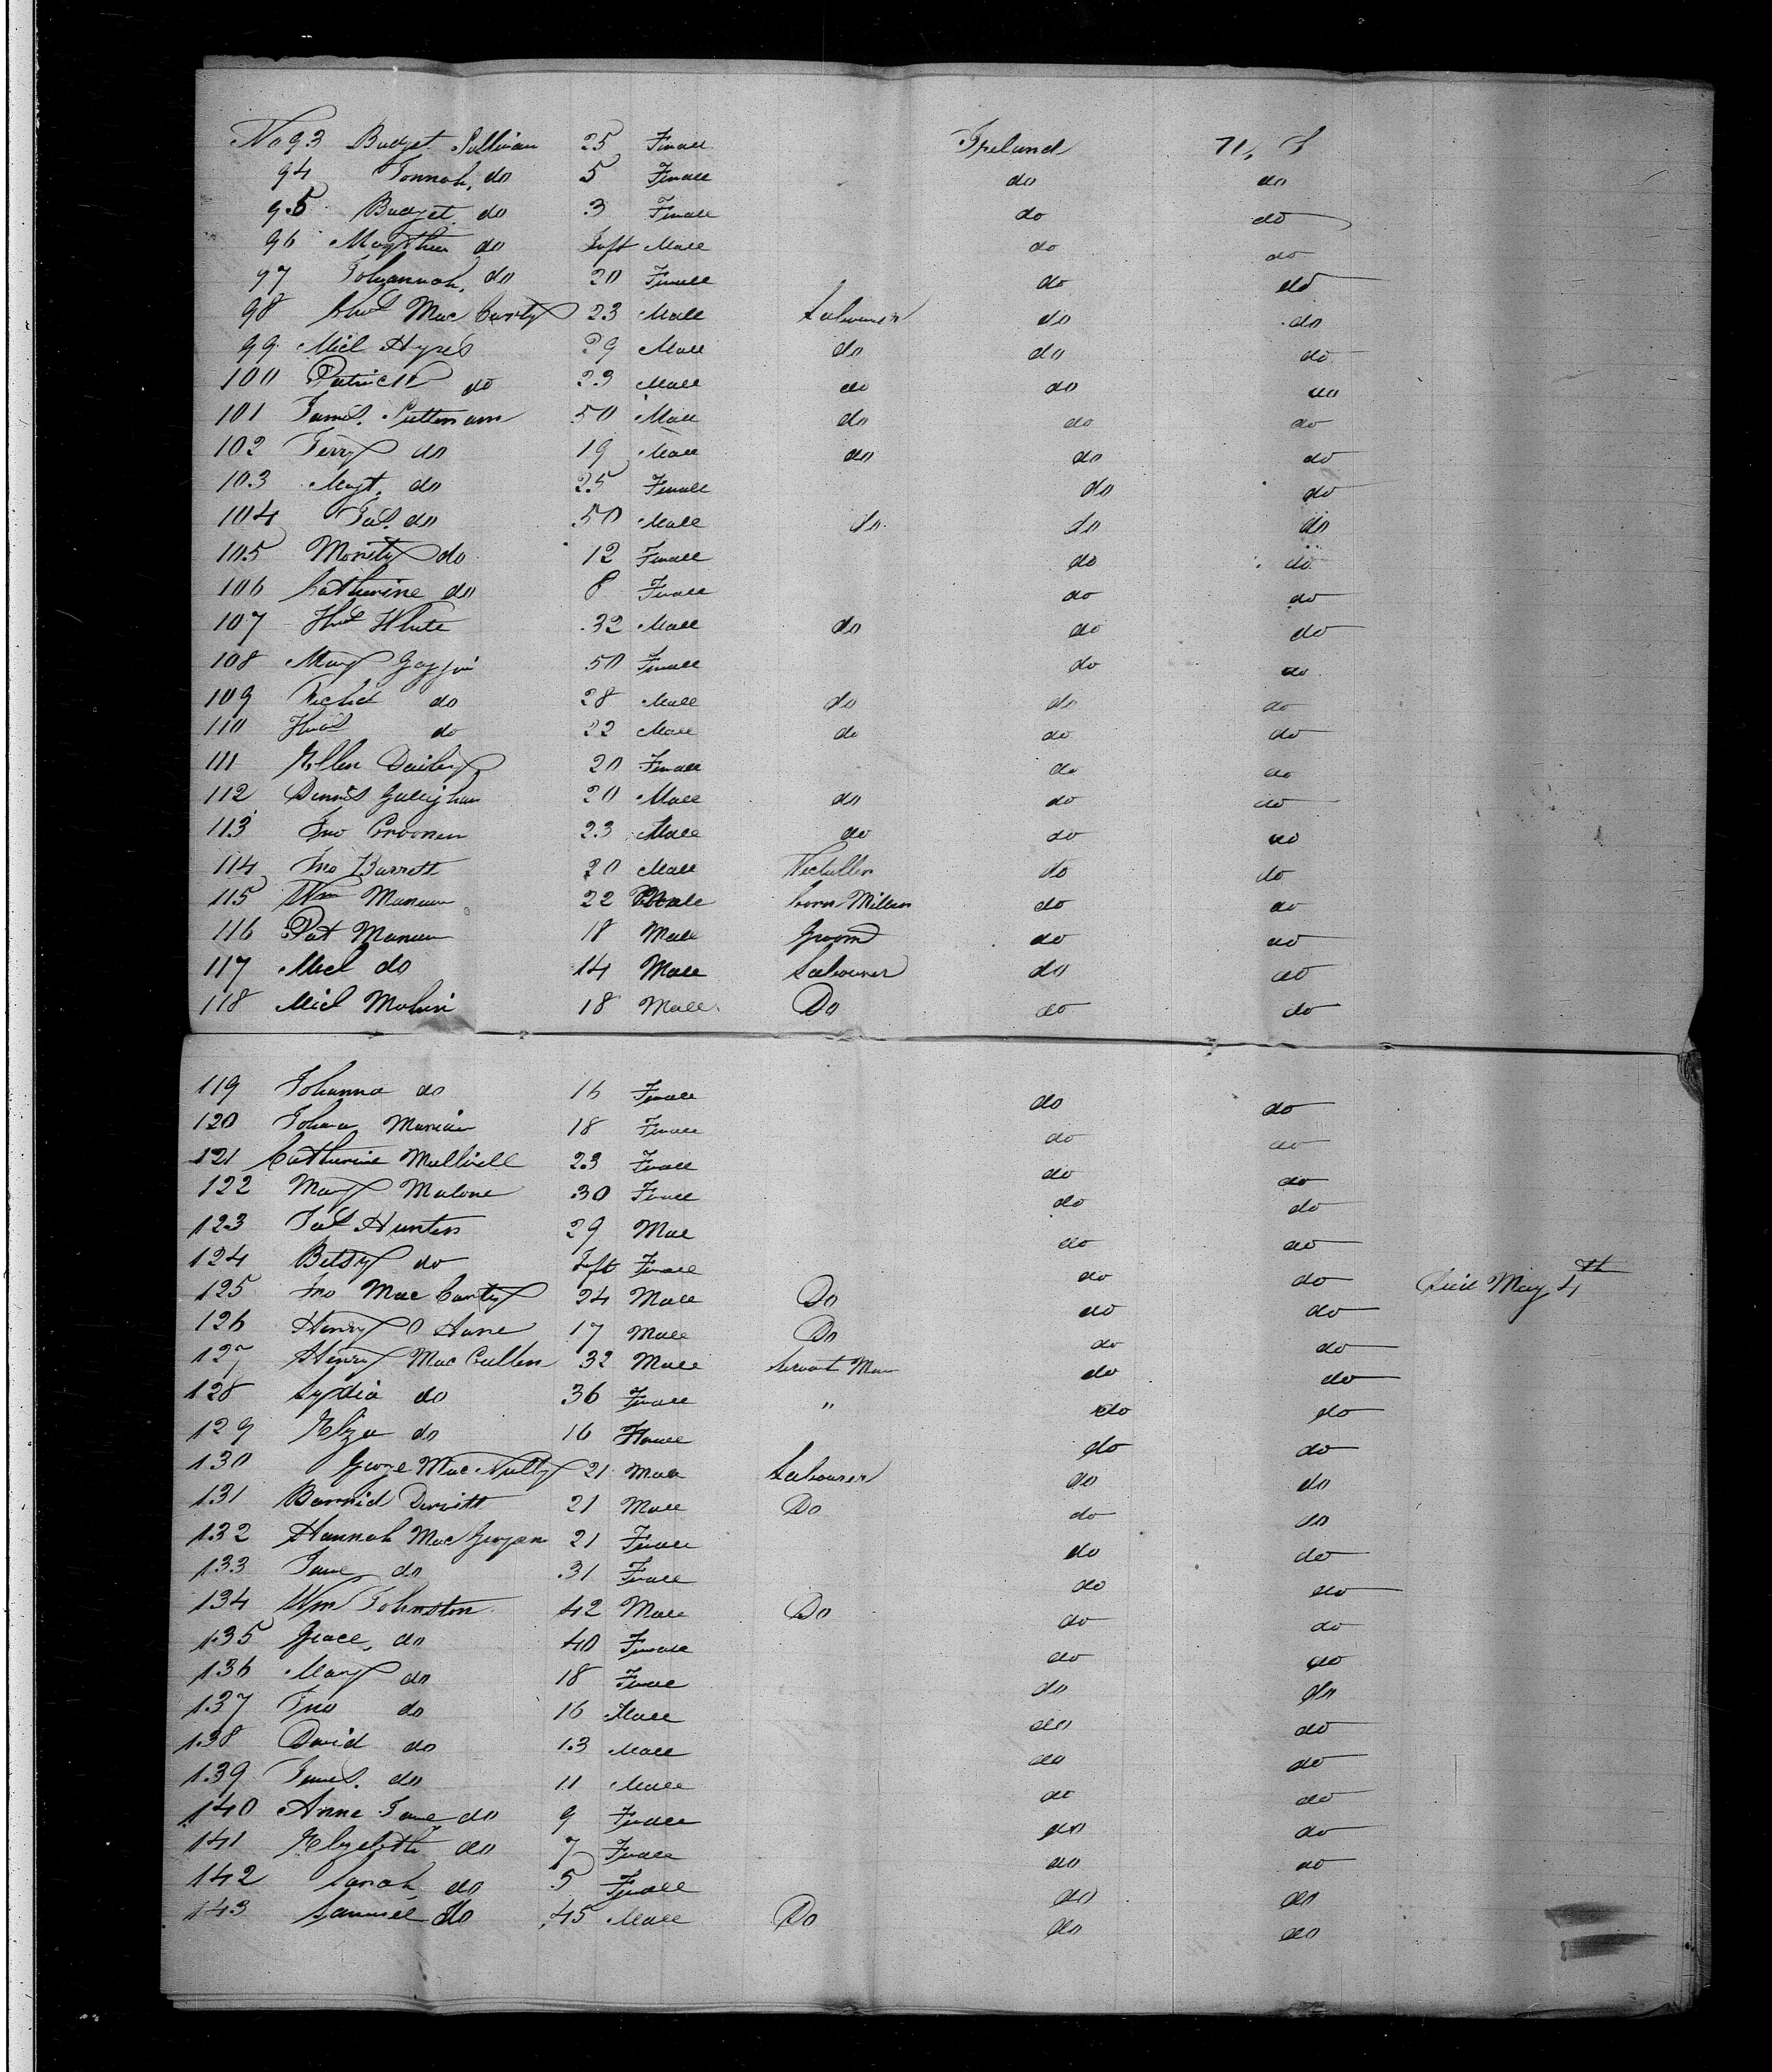 No 93 Budget Sullivan 25 Female Ireland U, S
94 Jonnah, do 5 Female do do
95 Budget do 3 Female do do
96 do Inft Male do do
97 Johannah, do 20 Female do do
98 Chas Mac Carty 23 Male Labourer do do
99 Micl Hyres 29 Male do do do
100 Patrick do 23 Male do do do
101 James Sullivan 50 Male do do do
102 Jerry do 19 Male do do do
103 Magt, do 25 Female do do
104 Jas. do 50 Male do do do
105 do 12 Female do do
106 Catherine do 8 Female do do
107 Thos White 32 Male do do do
108 Mary 50 Female do do
109 Richd do 28 Male do do do
110 Thos do 22 Male do do do
111 Ellen Dailey 20 Female do do
112 Dennis Gallighan 20 Male do do do
113 Jno Croonen 23 Male do do do
114 Jno Barrett 20 Male Victuller do do
115 Wm 22 Male Corn Miller do do
116 Pat 18 Male Groom do do
117 Micl do 14 Male Labourer do do
118 Micl 18 Male Do do do
119 Johanna do 16 Female do do
120 18 Female do do
121 Catherine 23 Female do do
122 Mary Malone 30 Female do do
123 Jas Hunter 29 Male do do
124 Betsy do Inft Female do do Died May 4th
125 Jno Mac Carty 24 Male Do do do
126 Henry O Hane 17 Male Do do do
127 Henry Mac Cullen 32 Male Servant Man do do
128 Lydia do 36 Female " do do
129 Eliza do 16 Female do do
130 George Mac Nulty 21 Male Labourer do do
131 21 Male Do do do
132 Hannah Mac 21 Female do do
133 Jane do 31 Female do do
134 Wm Johnston 42 Male Do do do
135 Grace, do 40 Female do do
136 Mary do 18 Female do do
137 Jno do 16 Male do do
138 David do 13 Male do do
139 James. do 11 Male do do
140 Anne Jane do 9 Female do do
141 Elizebeth do 7 Female do do
142 Sarah do 5 Female do do
143 Samuel do 45 Male Do do do